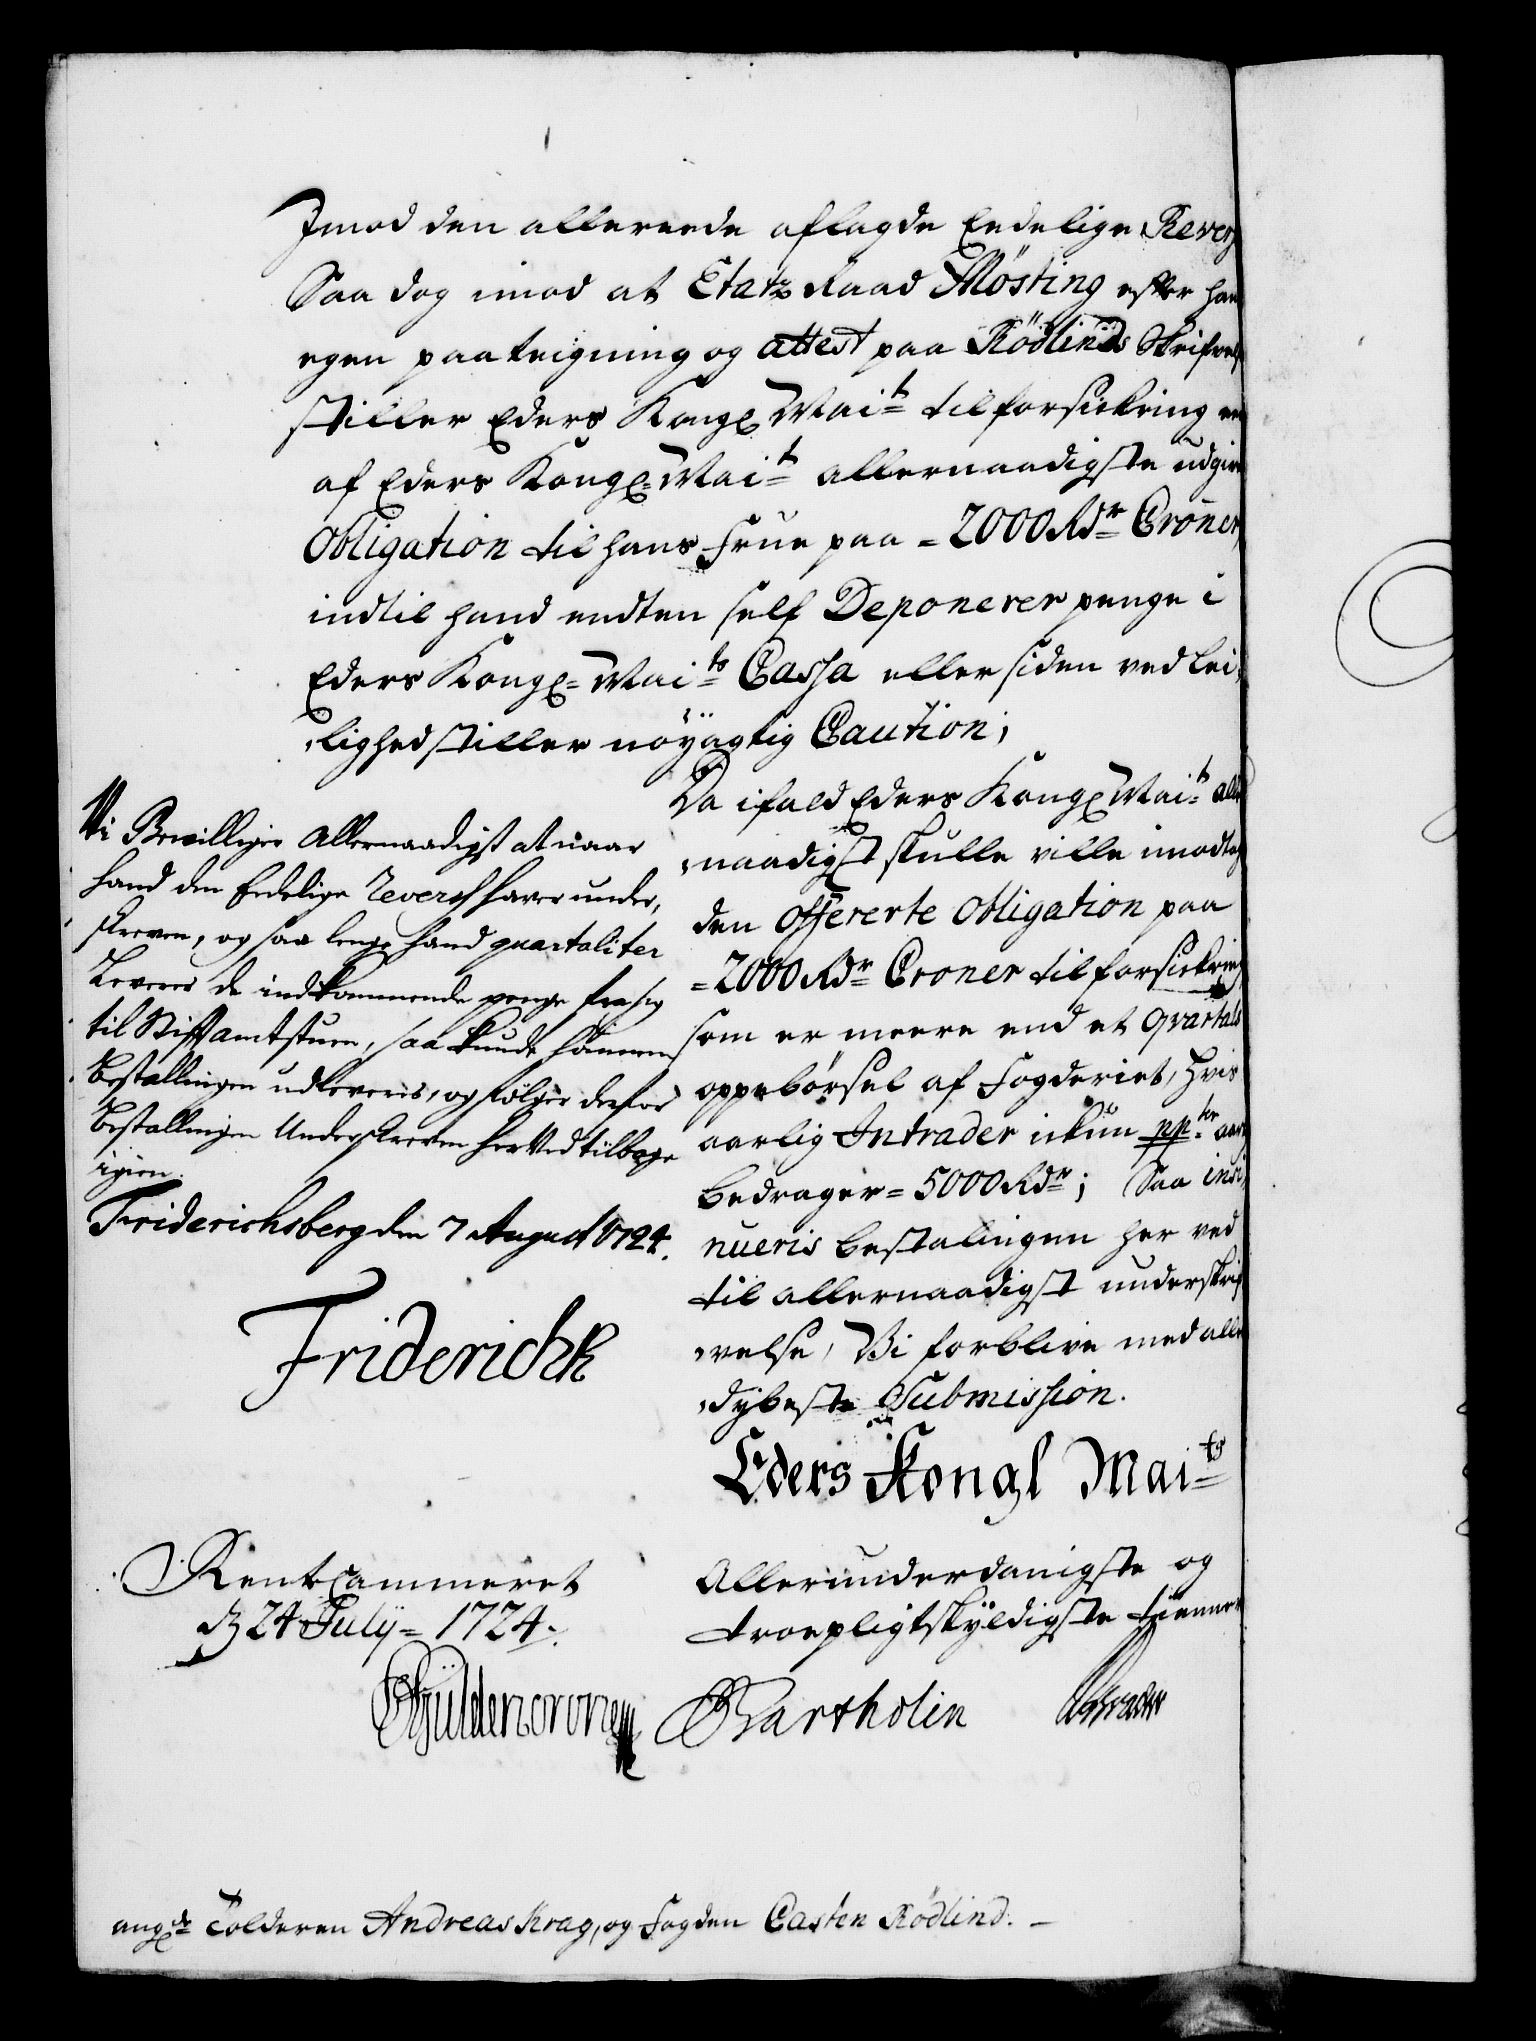 Imod den allereede aflagde Eedelige Revers
Saa dog imod at Etatz Raad Mösting efter han
egen paateigning og attest paa Rödlinds Skrifvel
stiller Eders Kongl Mai.t til forsickring en
af Eders Kongl. Mai.t allernaadigste udgivn
Obligation til hans Frue paa = 2000 Rdr Croner,
indtil hand endten self Deponerer penge i
Eders Kongl. Mai.ts Cassa eller siden ved lei,
,lighed stiller nöyagtig Caution;
Da ifald Eders Kongl Mai.t aller
,naadigst skulle ville imodtag
den offererte Obligation paa
= 2000 Rdr Croner til forsickring
som er meere end et qvartals
oppebörsel af Fogderiet, hvis
aarlig Intrader ickun pp.ter aar
bedrager = 5000 Rdr; Saa insi,
nueris bestalingen her ved
til allernaadigst underskrif
,velse, Vi forblive med aller
,dybeste Submission.
Eders Kongl Mai.ts
Allerunderdanigste og
troepligtskyldigste tienner
Vi Bevilliger Allernaadigst at naar
hand den Eedelige Revers haver under,
skreven, og saa lenge hand quartaliter
Leverer de indkommende penge fra sig
til Stiftamtstuen, saa kunde hannem
Bestallingen udleveris, og følger derfor
Bestallingen Underskreven herved tilbage
igien.
Friderichsberg den 7 August 1724.
Friderich R
RenteCammeret
d. 24 Julÿ = 1724.
Güldencrone Bartholin
ang.de Tolderen Andreas Krag, og Fogden Casten Rödlind. –